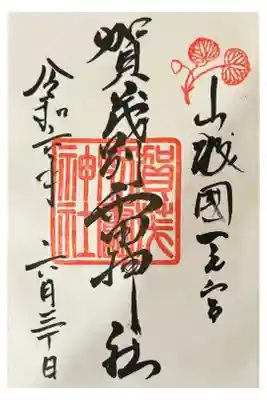 山城國一之宮
賀茂別雷神社
令和二年 六月三十日
賀茂別雷神社